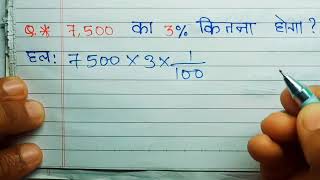 Q.* 7,500 का 3% कितना होगा?
हल: 7500 × 3 × 1/100